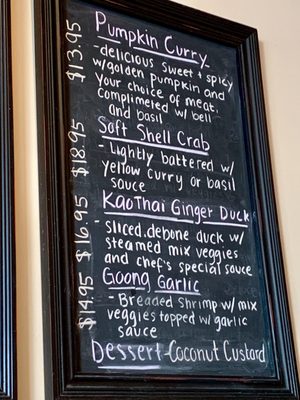 Pumpkin Curry
$13.95
- delicious sweet + spicy
w/golden pumpkin and
your choice of meat,
complimeted w/ bell
and basil
Soft Shell Crab
$18.95
- Lightly battered w/
yellow curry or basil
sauce
KaoThai Ginger Duck
$16.95
- sliced.debone duck w/
steamed mix veggies
and chef's special sauce
Goong Garlic
$14.95
- Breaded shrimp w/ mix
veggies topped w/ garlic
sauce
Dessert-Coconut Custard